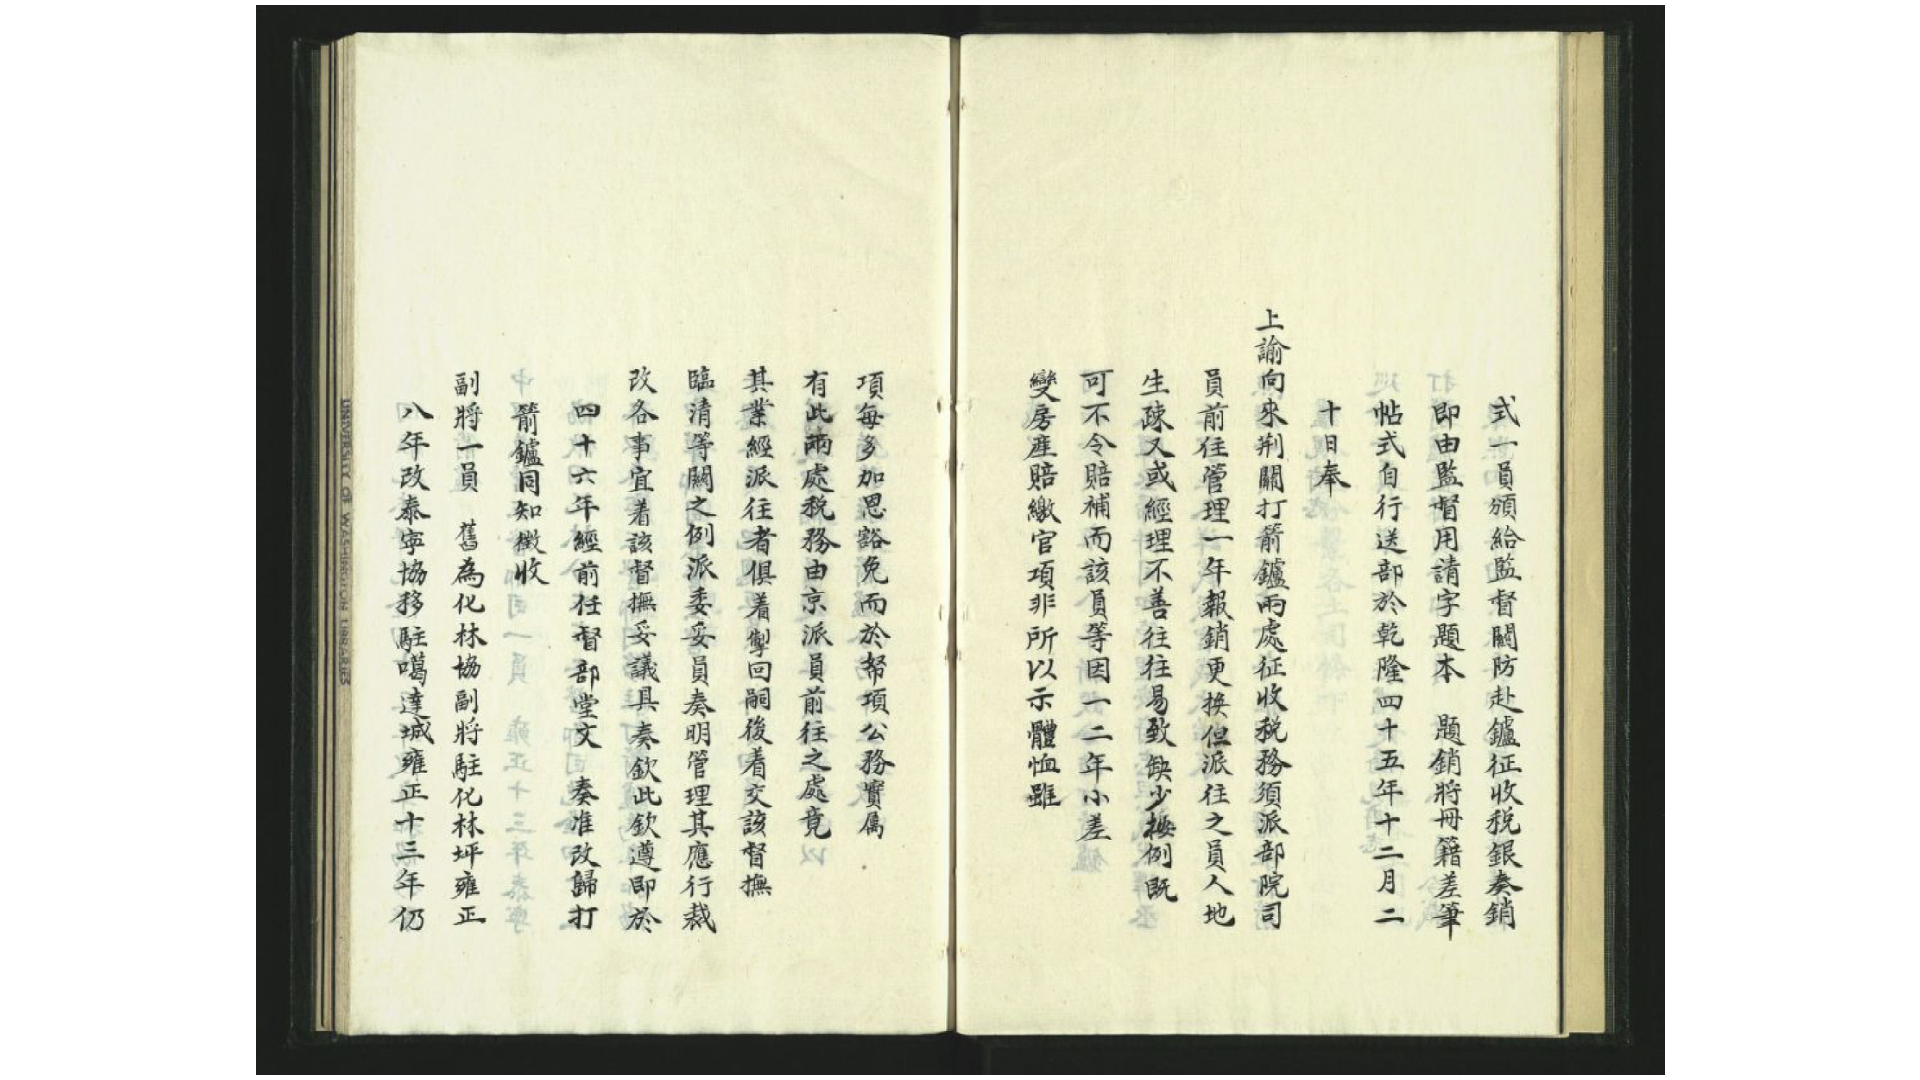 式一員頒給監督關防赴鑪征收税銀奏銷
即由監督用請字題本　題銷將冊籍差筆
帖式自行送部於乾隆四十五年十二月二
十日奉
上諭向來荆關打箭鑪兩處征收税務須派部院司
員前往管理一年報銷更換但派往之員人地
生疎又或經理不善往往易致缺少撫例既
可不令賠補而該員等因一二年小差
變房産賠繳官項非所以示體恤雖
項每多加恩豁免而於帑項公務實属
有此兩處税務由京派員前往之處竟
其業經派往者俱着掣回嗣後着交該督撫
臨清等關之例派委妥員奏明管理其應行裁
改各事宜着該督撫妥議具奏欽此欽遵即於
四十六年經前任督部堂文　奏准改歸打
箭鑪同知徴收
副將一員　舊為化林協副將駐化林坪雍正
八年改泰寜協移駐噶達城雍正十三年仍
UNIVERSITY OF WASHINGTON LIBRARIES